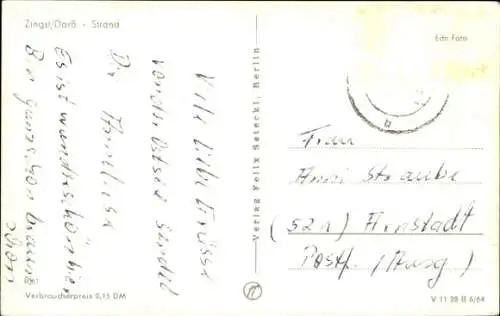 Zingst/Darß - Strand
Viele liebe Grüsse
von der Ostsee sendet
Dir Anneliese
Es ist wunderschön hier
Bin ganz schön braun
schon
R 6/1
Verbraucherpreis 0,15 DM
Verlag Felix Setecki, Berlin
Echt Foto
Frau
Anni Straube
(52n) Arnstadt
Postf. (Ausg)
V 11 28 B 6/64